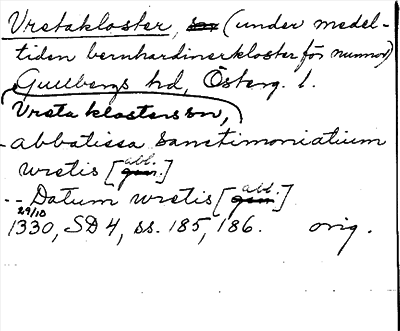 Vretakloster, sn (under medel-
tiden bernhardinerkloster för nunnor)
Gullbergs hd, Österg. l.
Vreta klosters sn,
- abbatissa sanctimonialium
wretis [gen. abl.]
-- Datum wretis [gen. abl.]
29/10
1330, SD 4, ss. 185, 186. orig.